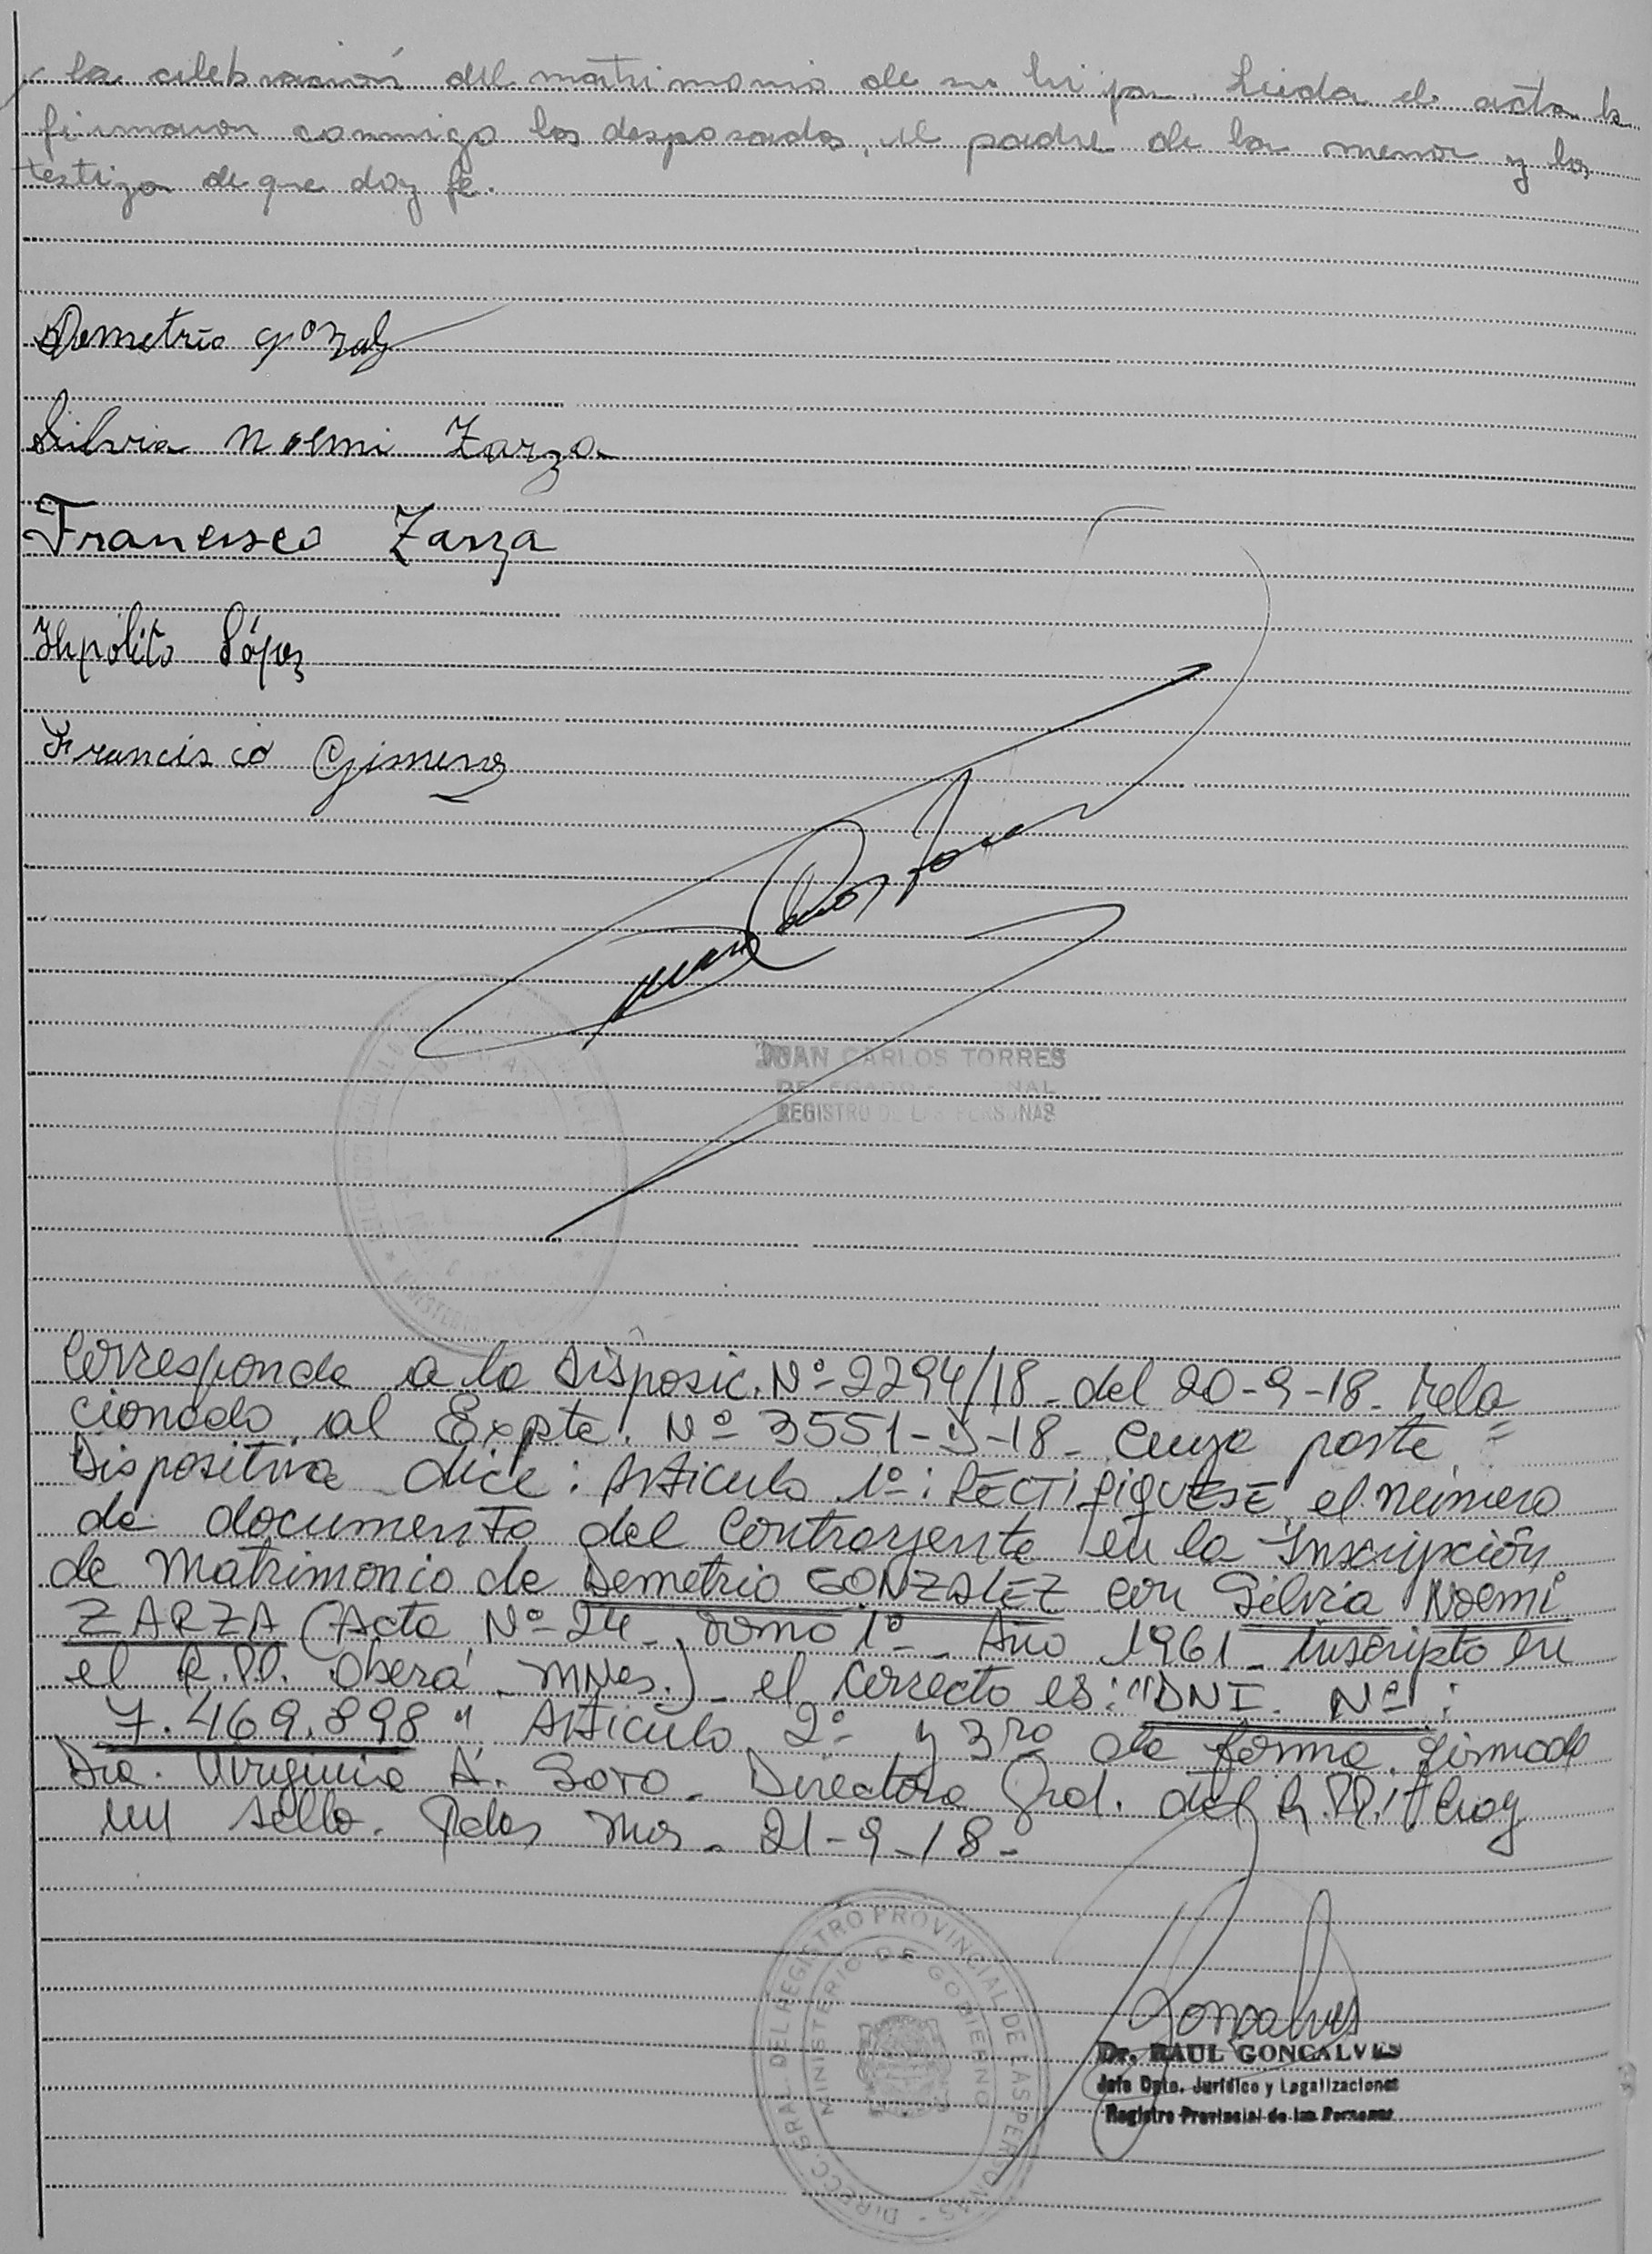 la celebración del matrimonio de su hija. Leida el acta la
firmaron conmigo los desposados, el padre de la menor y los
testigos de que doy fe.
Demetrio Gonzalz
Silvia Noemi Zarza
Francisco Zarza
Hipólito López
Francisco Gimenez
JUAN CARLOS TORRES
REGISTRO DE LAS PERSONAS
Corresponde a la Disposic. Nº 2294/18 - del 20-9-18 - Rela
cionado al Expte. Nº 3551-D-18 - Cuya parte =
Dispositiva dice: Articulo 1º: RECTIFIQUESE el número
de documento del Contrayente en la Inscripción
de Matrimonio de Demetrio GONZALEZ con Silvia Noemi
ZARZA (Acta Nº 24 - Tomo 1º - Año 1961 - inscripto en
el R.P.P. Oberá - Mnes.) - el correcto es: "DNI. Nº:
7.469.898" Articulo 2º y 3ro de forma. Firmado
Dra. Virginia A. Soto - Directora Gral. del R.P.P. Hay
un sello. Pdas Mnes - 21-9-18 -
DIRECC. GRAL. DEL REGISTRO PROVINCIAL DE LAS PERSONAS
MINISTERIO DE GOBIERNO
Goncalves
Dr. RAUL GONCALVES
Jefe Dpto. Jurídico y Legalizaciones
Registro Provincial de las Personas